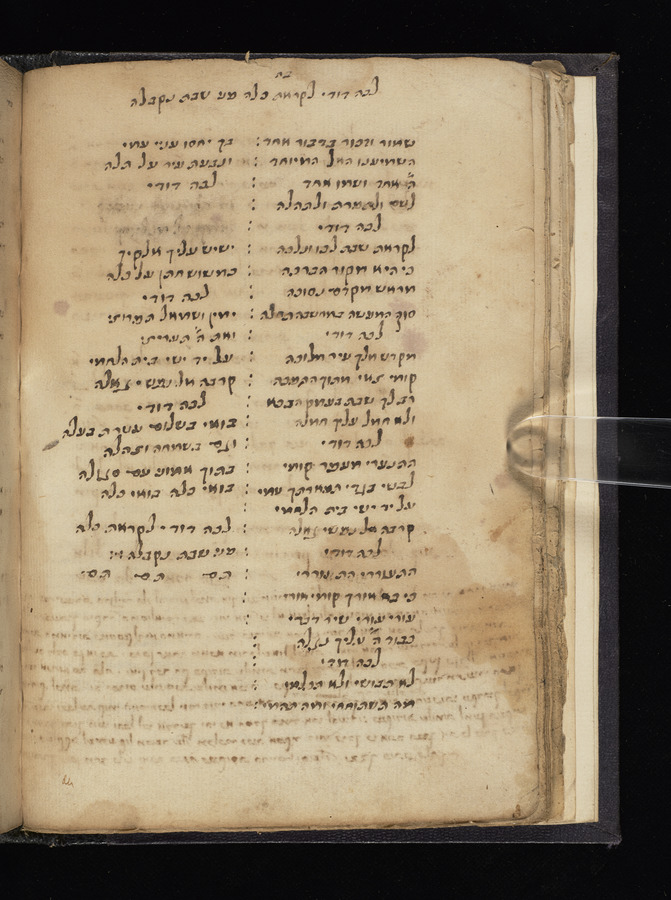 לכה דודי לקראת כלה פני שבת נקבלה
שמור וזכור בדבור אחד :
השמיענו האל המיוחד :
ה' אחד ושמו אחד :
לשם ולתפארת ולתהלה :
לכה דודי :
לקראת שבת לכו ונלכה :
כי היא מקור הברכה :
מראש מקדם נסוכה :
סוף המעשה במחשבה תחלה :
לכה דודי :
מקדש מלך עיר מלוכה :
קומי צאי מתוך ההפכה :
רב לך שבת בעמק הבכא :
ולא חמל עליך חמלה :
לכה דודי :
התנערי מעפר קומי :
לבשי בגדי תפארתך עמי :
על יד ישי בית הלחמי :
קרבה אל נפשי גאלה :
לכה דודי :
התעוררי התעוררי :
כי בא אורך קומי אורי :
עורי עורי שיר דברי :
כבוד ה' עליך נגלה :
לכה דודי :
לא תבושי ולא תכלמי :
מה תשתוחחי ומה תהמי :
בך יחסו עניי עמי
ונבנת עיר על תלה
לכה דודי
ישיש עליך אלקיך
כמשוש חתן על כלה
לכה דודי
ימין ושמאל תפרוצי
ואת ה' תעריצי
על יד ישי בית הלחמי
קרבה אל נפשי גאלה
לכה דודי
בואי בשלום עטרת בעלה
וגם בשמחה וצהלה
בתוך אמוני עם סגולה
בואי כלה בואי כלה
לכה דודי לקראת כלה
פני שבת נקבלה
תם תם תם